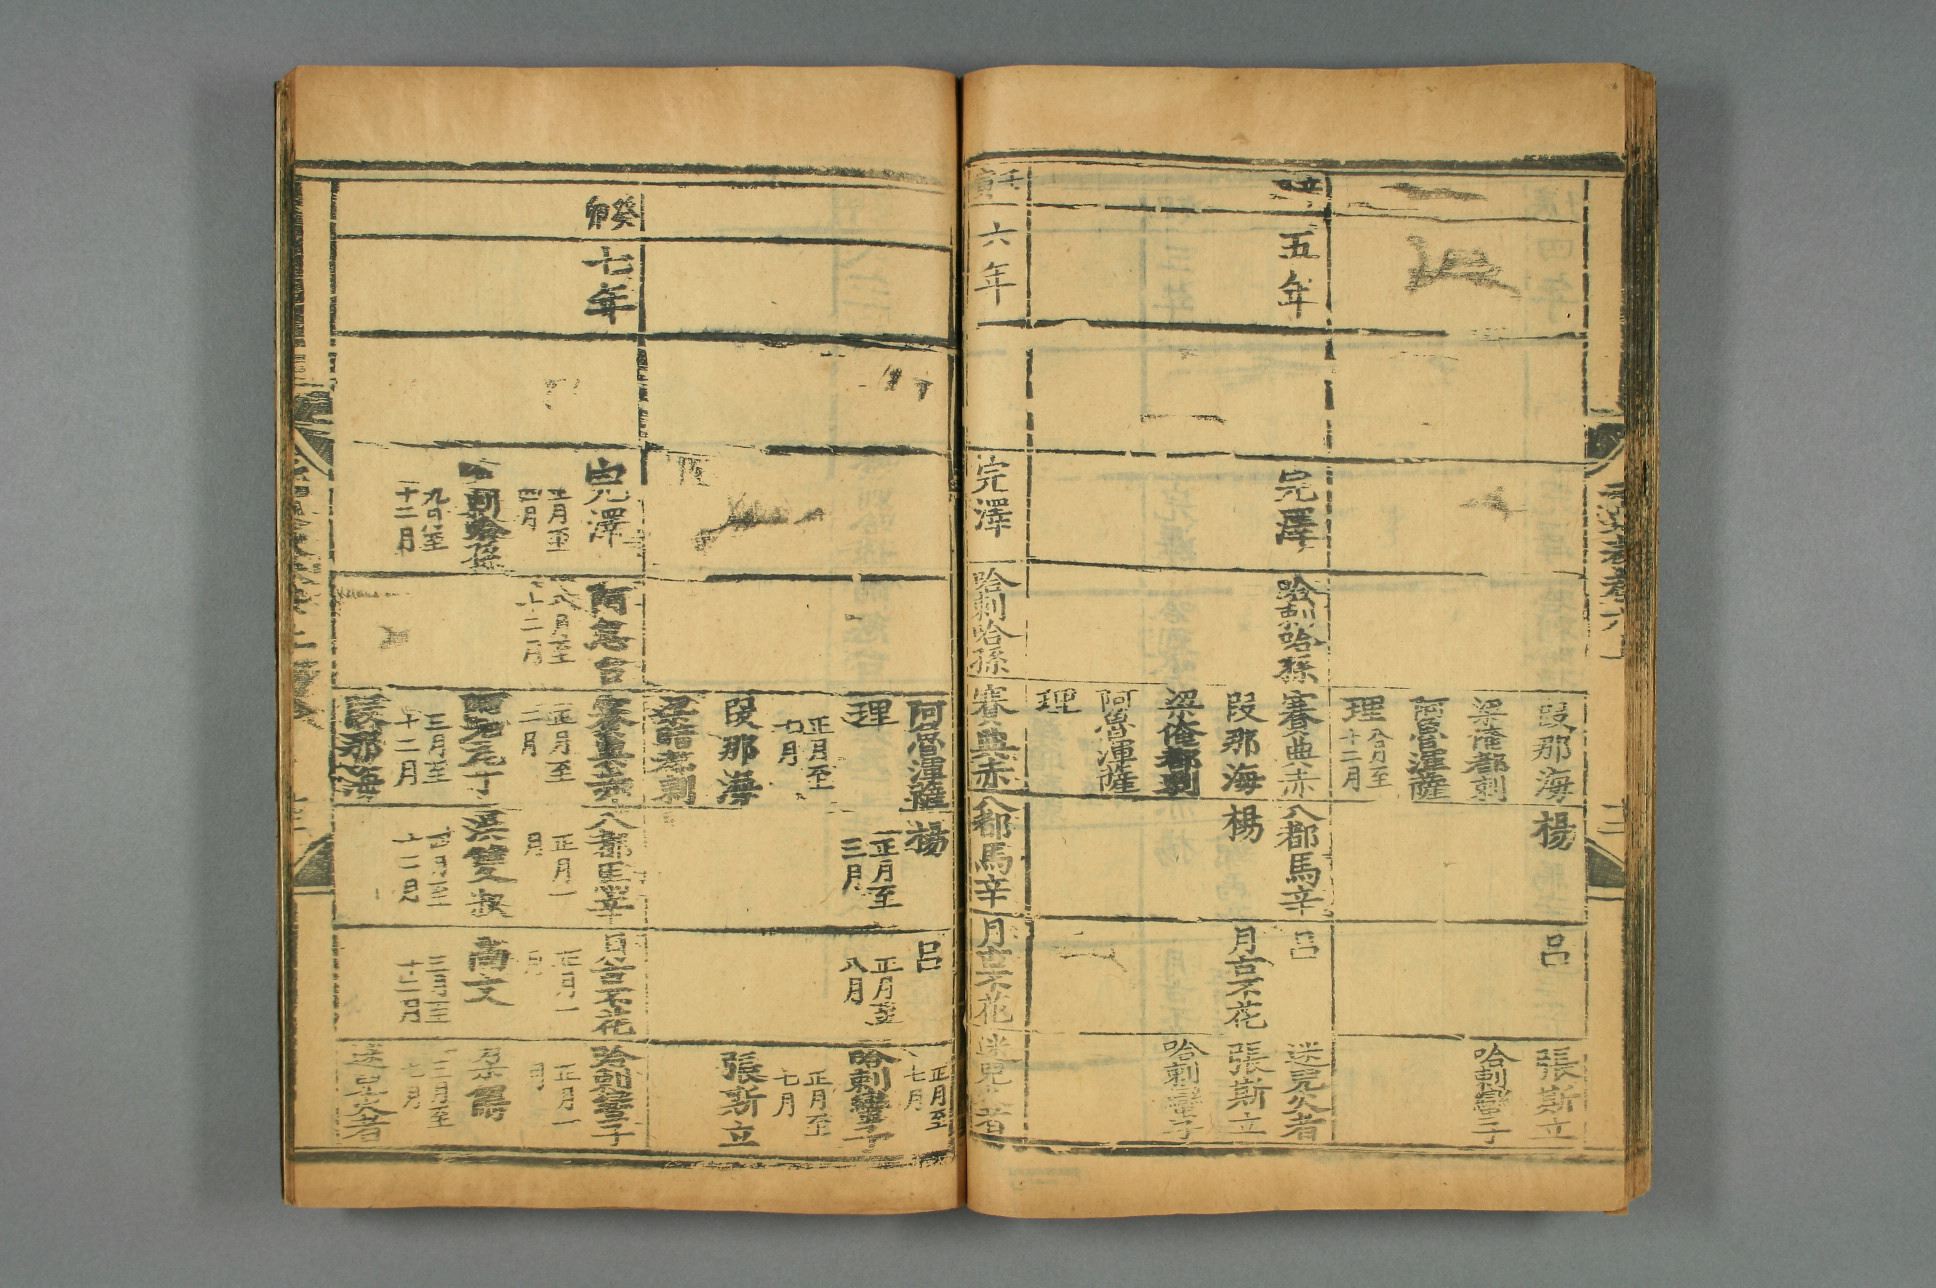 段那海
楊
呂
張斯立
梁俺都剌
哈剌蠻子
阿魯渾薩
理
八月至
十二月
五年
完澤
哈剌哈孫
賽典赤
八都馬辛
呂
迷兒火者
段那海
楊
月古不花
張斯立
梁俺都剌
哈剌蠻子
阿魯渾薩
理
壬寅
六年
完澤
哈剌哈孫
賽典赤
八都馬辛
月古不花
迷兒火者
阿魯渾薩
楊
呂
正月至
七月
理
正月至
三月
正月至
八月
哈剌蠻子
正月至
七月
正月至
七月
段那海
張斯立
梁暗都剌
癸卯
七年
完澤
阿忽台
賽典赤
八都馬辛
月古不花
哈剌蠻子
正月至
四月
八月至
十二月
正月至
二月
正月一
月
正月一
月
正月一
月
洪雙叔
尚文
九月至
十二月
三月至
十二月
十二月
三月至
十二月
三月至
七月
段那海
迷兒火者